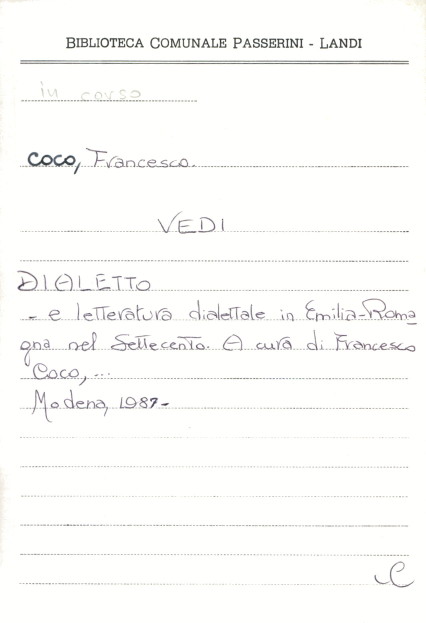 BIBLIOTECA COMUNALE PASSERINI - LANDI
in corso
COCO, Francesco.
VEDI
DIALETTO
- e letteratura dialettale in Emilia-Roma
gna nel Settecento. A cura di Francesco
Coco, ...
Modena, 1987-